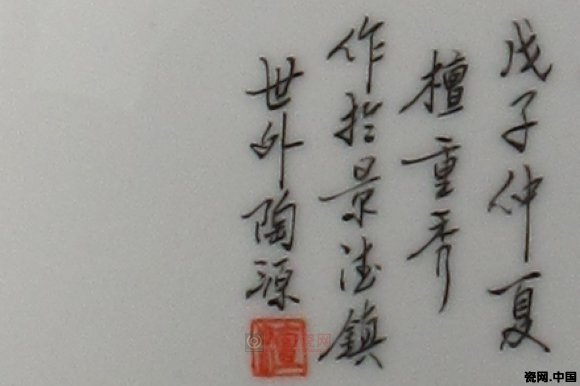 戊子仲夏
檀重秀
作於景德鎮
世外陶源
檀
瓷网.中国